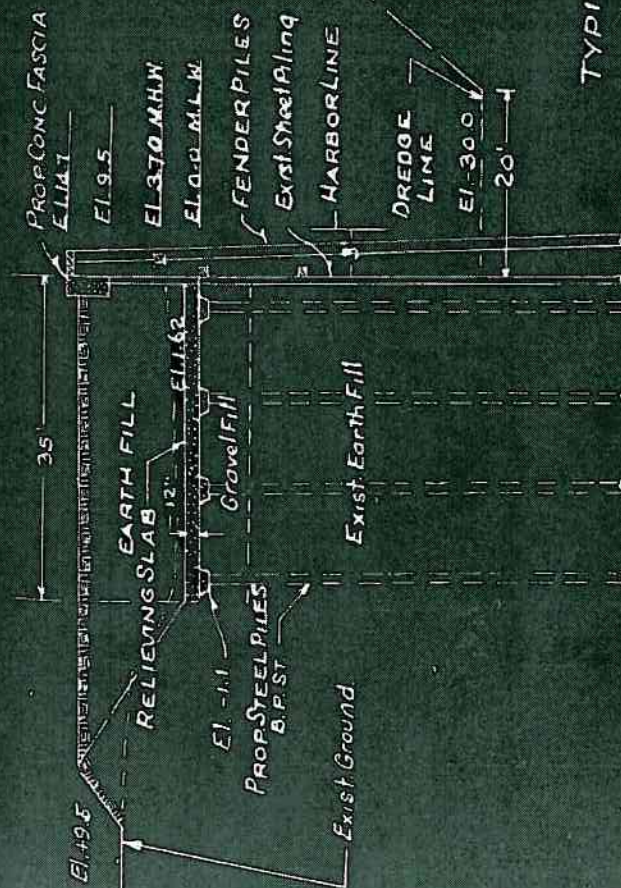 PROP. CONC FASCIA
El.14.7
El.9.5
El.3.70 M.H.W
El.0.0 M.L.W
FENDER PILES
Exist Sheet Piling
HARBOR LINE
DREDGE
LINE
El-30.0
20'
35'
EARTH FILL
RELIEVING SLAB
12"
El.1.62
Gravel Fill
Exist. Earth Fill
El. -1.1
PROP STEEL PILES
B.P. ST
El.+9.5
Exist. Ground
TYPI